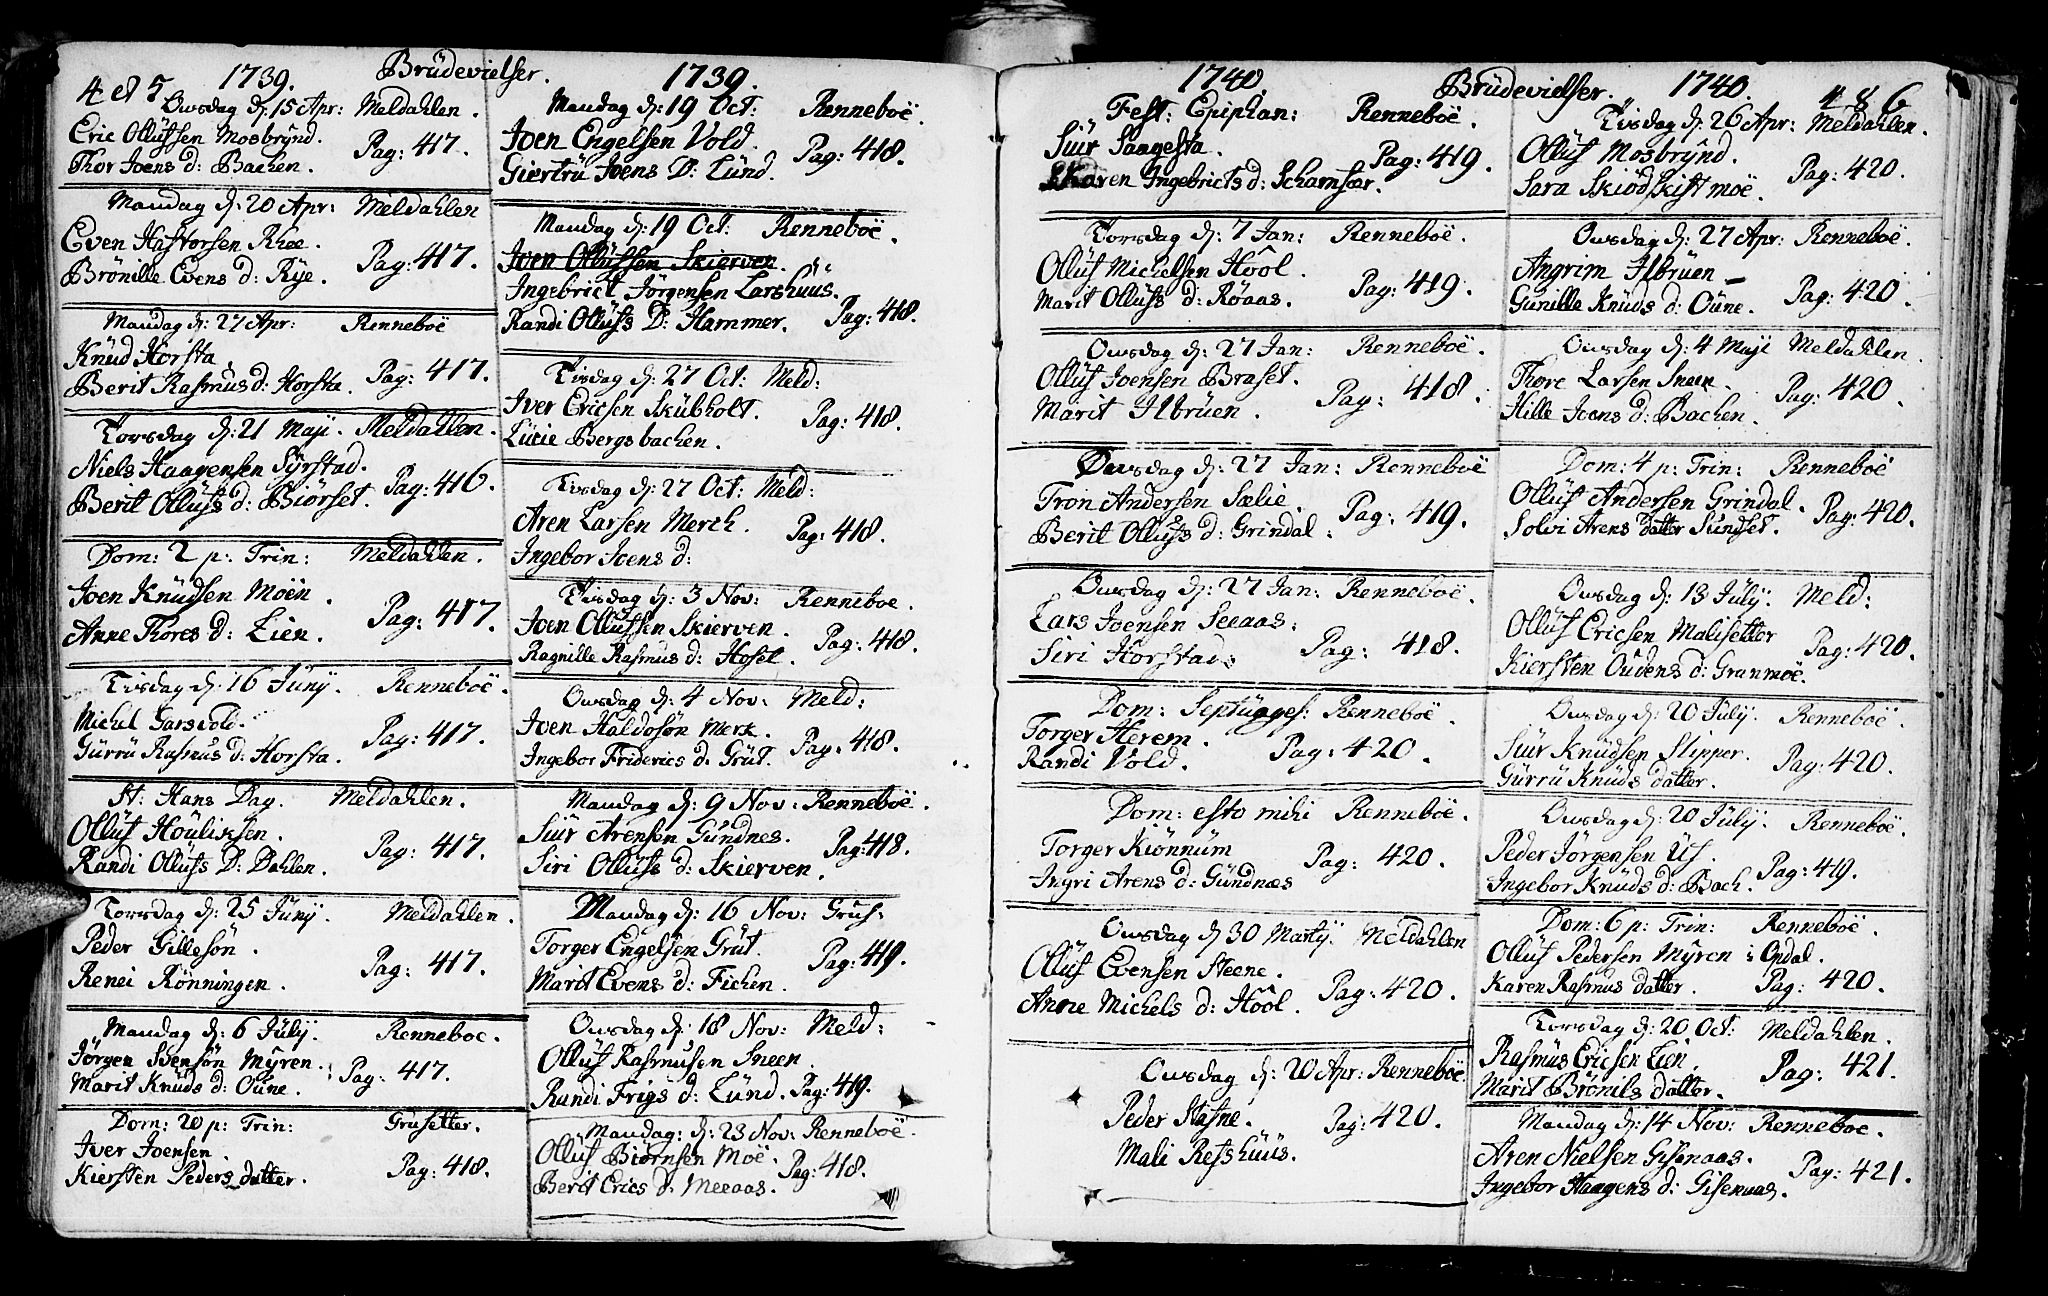 485 1739. Brüdevielser. 1739.
Onsdag d: 15 Apr: Meldahlen.
Eric Ollüfsen Mosbrÿnd.
Thor Joens d: Bachen. Pag: 417.
Mandag d: 20 Apr: Meldahlen
Even Hastorsen Rhoe.
Brönille Evens d: Rÿe. Pag: 417.
Mandag d: 27 Apr: Renneboë
Knüd Horsta
Berit Rasmus d: Horsta. Pag: 417.
Torsdag d: 21 Maji. Meldahlen.
Niels Haagensen Sÿrstad.
Berit Ollüfs d: Biörset. Pag: 416.
Dom: 2 p: Trin: Meldahlen.
Joen Knüdsen Moën.
Anne Thores d: Lien. Pag: 417.
Tisdag d: 16 Junÿ. Renneboë.
Michel Garsvold.
Gürrü Rasmus d: Horsta. Pag: 417.
St: Hans Dag. Meldahlen.
Ollüf Houlissen.
Randi Ollüfs D: Dahlen. Pag: 417.
Torsdag d: 25 Junÿ. Meldahlen.
Peder Gillesön.
Renei Rönningen. Pag: 417.
Mandag d: 6 Jülÿ. Renneboe.
Jörgen Svensön Mÿren.
Marit Knüds d: Oüne. Pag: 417.
Dom: 20 p: Trin: Grüsetter.
Iver Joensen.
Kiersten Peders datter. Pag: 418.
Mandag d: 19 Oct: Renneboë.
Joen Engelsen Vold.
Giertrü Joens D: Lünd. Pag: 418.
Mandag d: 19 Oct: Renneboë.
Joen Ollüfssen Skierven.
Ingebrict Jörgensen Larshüüs.
Randi Ollüfs D: Hammer. Pag: 418.
Tisdag d: 27 Oct: Meld:
Iver Ericsen Skübholt.
Lücie Bergsbachen. Pag: 418.
Tisdag d: 27 Oct: Meld:
Aren Larsen Merch.
Ingebor Joens d: Pag: 418.
Tisdag d: 3 Nov: Renneboe.
Joen Ollüfsen Skierven.
Ragnille Rasmus d: Hosel. Pag: 418.
Onsdag d: 4 Nov: Meld:
Joen Haldosön Merk.
Ingebor Friderics d: Grüt. Pag: 418.
Mandag d: 9 Nov: Renneboë.
Siür Arensen Gündnes.
Siri Ollüfs d: Skierven. Pag: 418.
Mandag d: 16 Nov: Grus:
Torger Engelsen Grüt.
Marit Evens d: Fichen. Pag: 419.
Onsdag d: 18 Nov: Meld:
Ollüf Rasmusen Sneen
Randi Frigs d: Lünd. Pag: 419.
Mandag: d: 23 Nov: Renneboë.
Ollüf Biörnsen Moë.
Berit Erics d: Meeaas. Pag: 418.
1740. Brüdevielser. 1740. 486
Fest: Epiphan: Renneboë.
Siür Saagesta.
Karen Ingebricts d: Schamfær. Pag: 419.
Torsdag d: 7 Jan: Renneboë.
Ollüf Michelsen Hoôl.
Marit Ollüfs d: Röaas. Pag: 419.
Onsdag d: 27 Jan: Renneboë.
Ollüf Joensen Braset.
Marit Ilbrüen. Pag: 418.
Onsdag d: 27 Jan: Renneboë
Tron Andersen Sælie.
Berit Ollüfs d: Grindal. Pag: 419.
Onsdag d: 27 Jan: Renneboë.
Lars Joensen Seeaas.
Siri Horstad. Pag: 418.
Dom: Septuages: Renneboë.
Torger Herem.
Randi Vold. Pag: 420.
Dom: esto mihi Renneboë.
Torger Kiönnüm
Ingri Arens d: Gündnæs Pag: 420.
Onsdag d: 30 Martÿ. Meldahlen
Ollüf Evensen Steene.
Anne Michels d: Hoôl. Pag: 420.
Onsdag d: 20 Apr: Renneboë
Peder Hafne.
Mali Refshüüs. Pag: 420.
Tisdag d: 26 Apr: Meldahlen.
Ollüf Mosbrÿnd.
Sara Skiödskift moë. Pag: 420.
Onsdag d: 27 Apr: Renneboë.
Angrim Ilbrüen
Günille Knüds d: Oüne. Pag: 420.
Onsdag d: 4 Maji Meldahlen.
Thore Larsen Sneen.
Hille Joens d: Bachen. Pag: 420.
Dom: 4 p: Trin: Renneboë
Ollüf Andersen Grindal.
Solvi Arens datter Sundset. Pag: 420.
Onsdag d: 13 Jülÿ. Meld:
Ollüf Ericsen Malisetter
Kiersten Oudens d: Granmoë. Pag: 420.
Onsdag d: 20 Jülÿ. Renneboë.
Siür Knüdsen Slipper.
Gürrü Knüds datter. Pag: 420.
Onsdag d: 20 Jülÿ. Renneboë.
Peder Jörgensen Uf.
Ingebor Knüds d: Bach. Pag: 419.
Dom: 6 p: Trin: Renneboë.
Ollüf Pedersen Mÿren i Opdal.
Karen Rasmus datter. Pag: 420.
Torsdag d: 20 Oct: Meldahlen.
Rasmus Ericsen Lien.
Marit Brönils datter. Pag: 421.
Mandag d: 14 Nov: Renneboe.
Aren Nielsen Gisenaas.
Ingebor Haagens d: Gisenaas. Pag: 421.